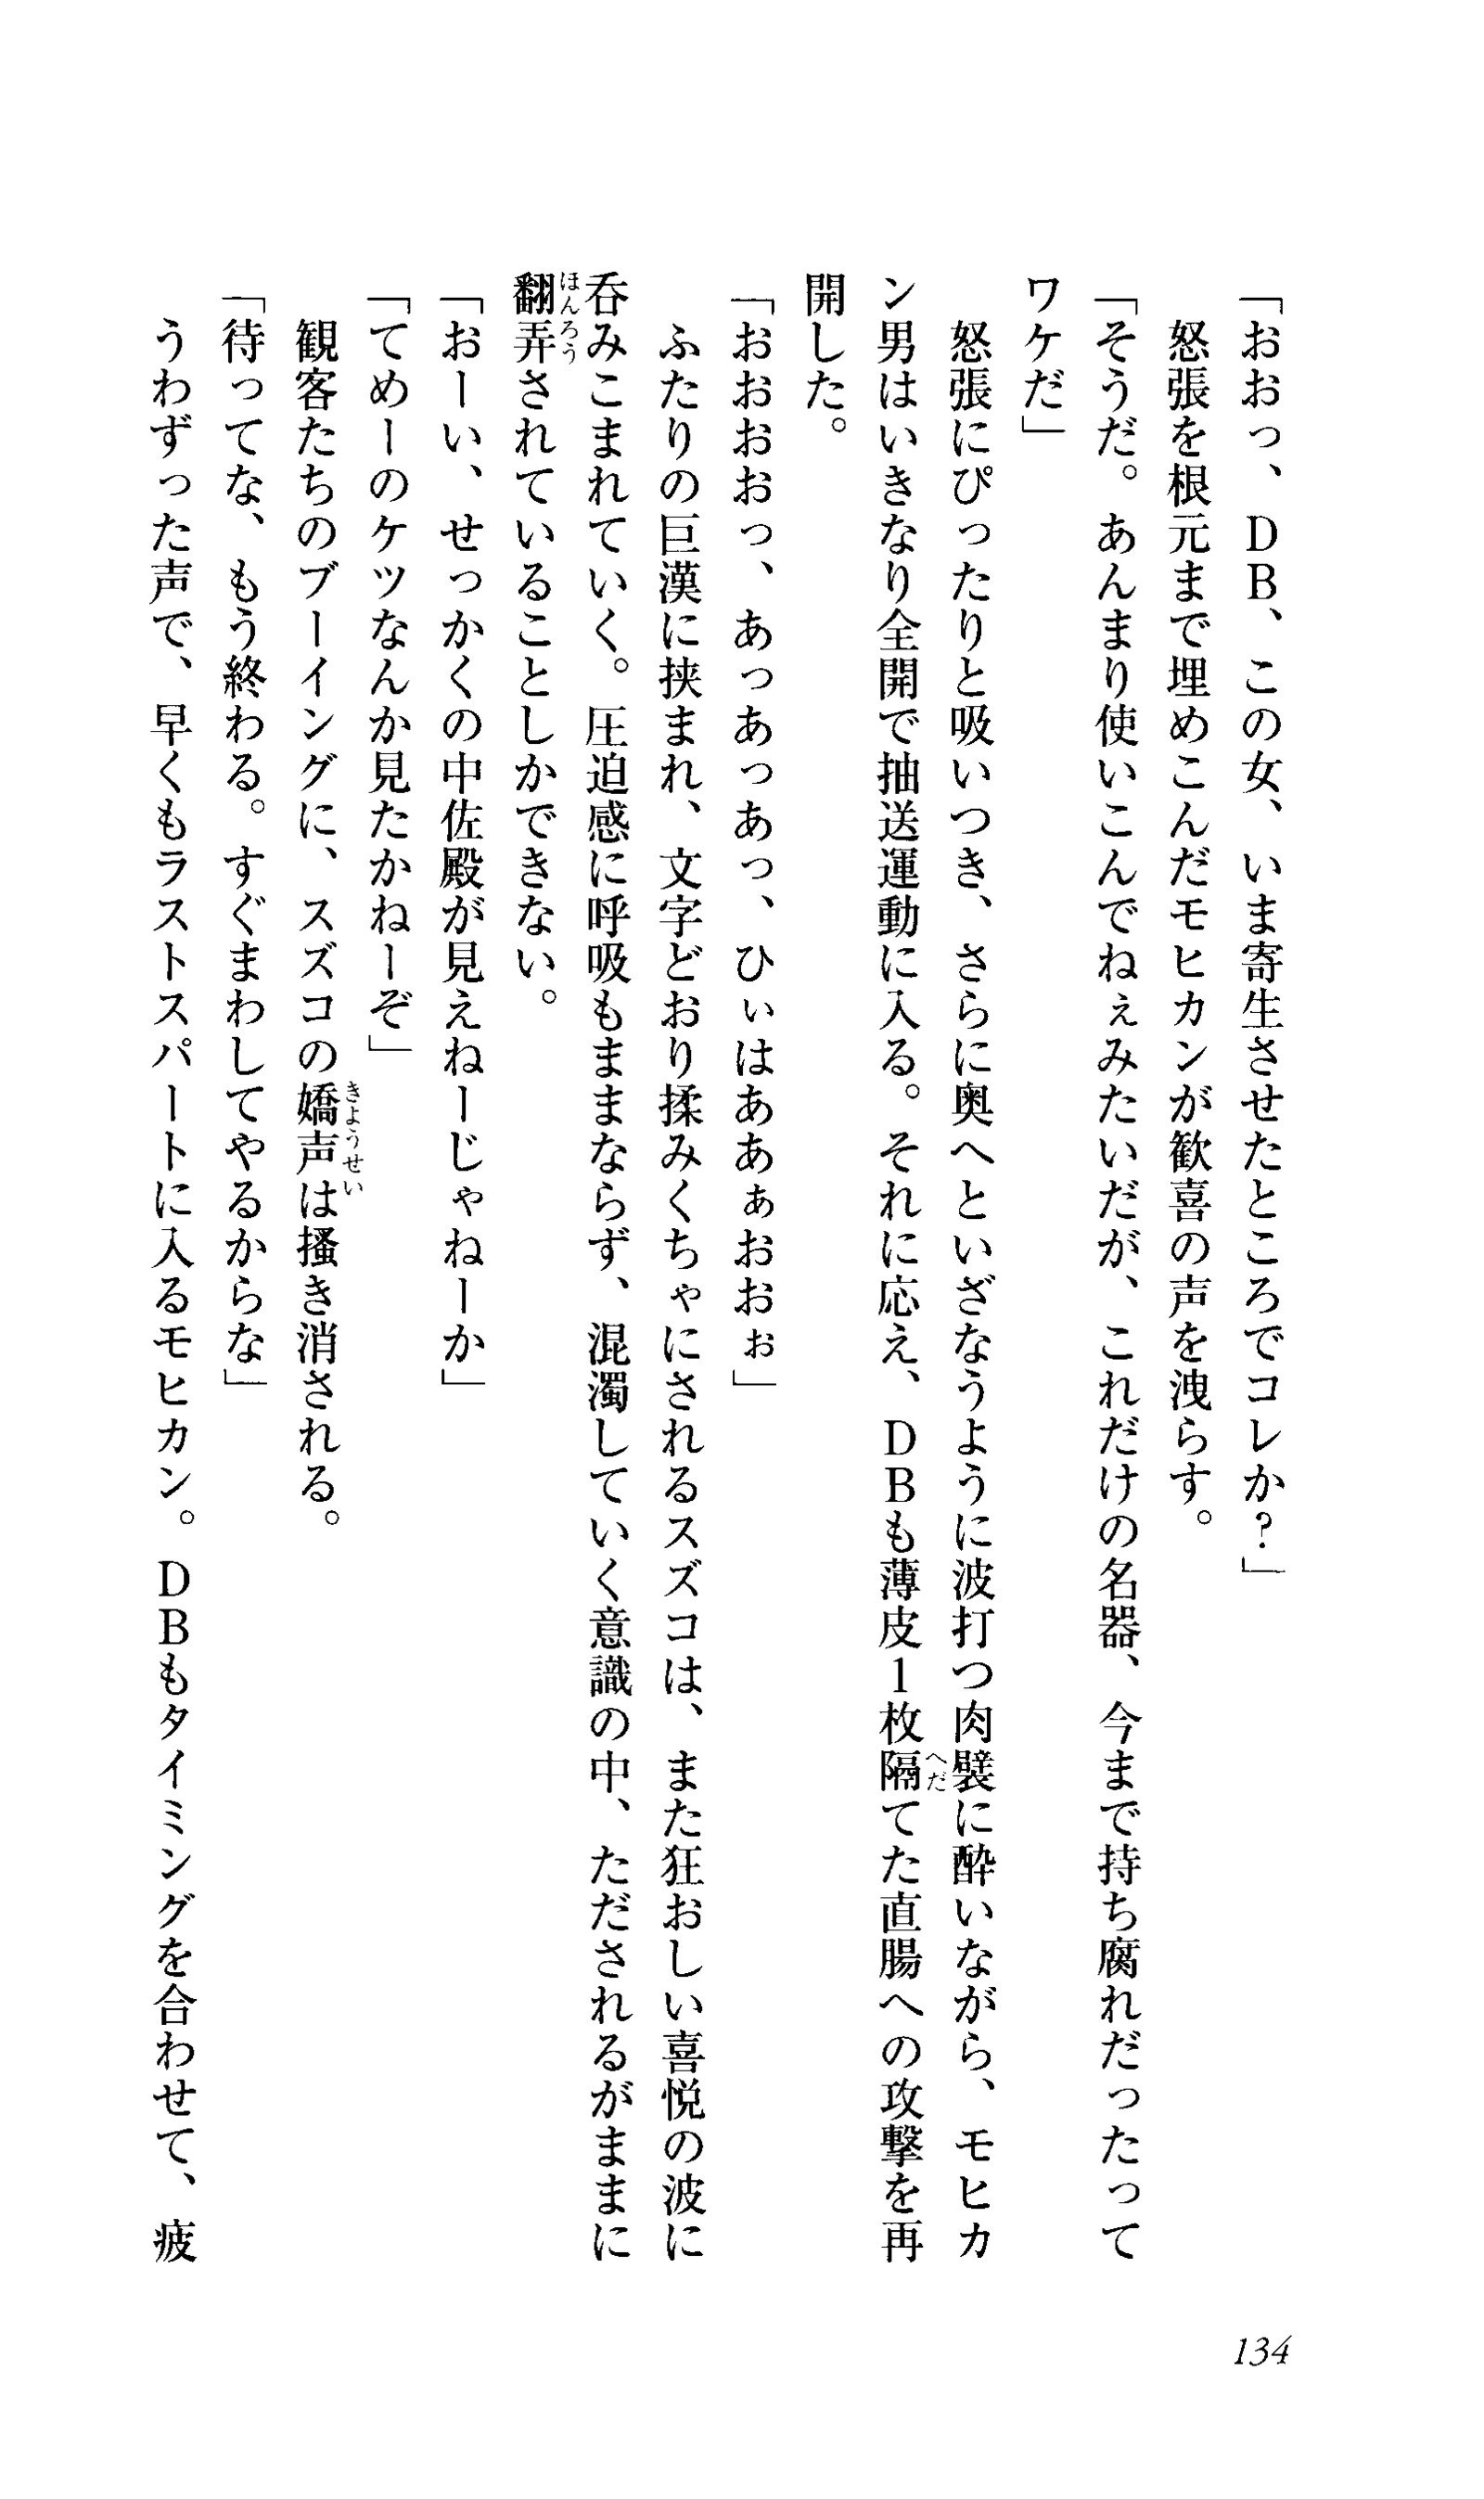 「おおっ、DB、この女、いま寄生させたところでコレか?」
怒張を根元まで埋めこんだモヒカンが歓喜の声を洩らす。
「そうだ。あんまり使いこんでねぇみたいだが、これだけの名器、今まで持ち腐れだったって
ワケだ」
怒張にぴったりと吸いつき、さらに奥へといざなうように波打つ肉襞に酔いながら、モヒカ
へだ
ン男はいきなり全開で抽送運動に入る。それに応え、DBも薄皮1枚隔てた直腸への攻撃を再
開した。
「おおおおっ、あっあっあっ、ひぃはああぁおおぉ」
ふたりの巨漢に挟まれ、文字どおり揉みくちゃにされるスズコは、また狂おしい喜悦の波に
呑みこまれていく。圧迫感に呼吸もままならず、混濁していく意識の中、たださ​れるがままに
ほんろう
翻弄されていることしかできない。
「おーい、せっかくの中佐殿が見えねーじゃねーか」
「てめーのケツなんか見たかねーぞ」
きようせい
観客たちのブーイングに、スズコの嬌声は掻き消される。
「待ってな、もう終わる。すぐまわしてやるからな」
うわずった声で、早くもラストスパートに入るモヒカン。DBもタイミングを合わせて、疲
134